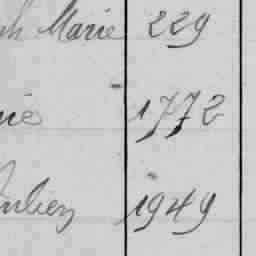 Marie 229
1772
Julien 1949